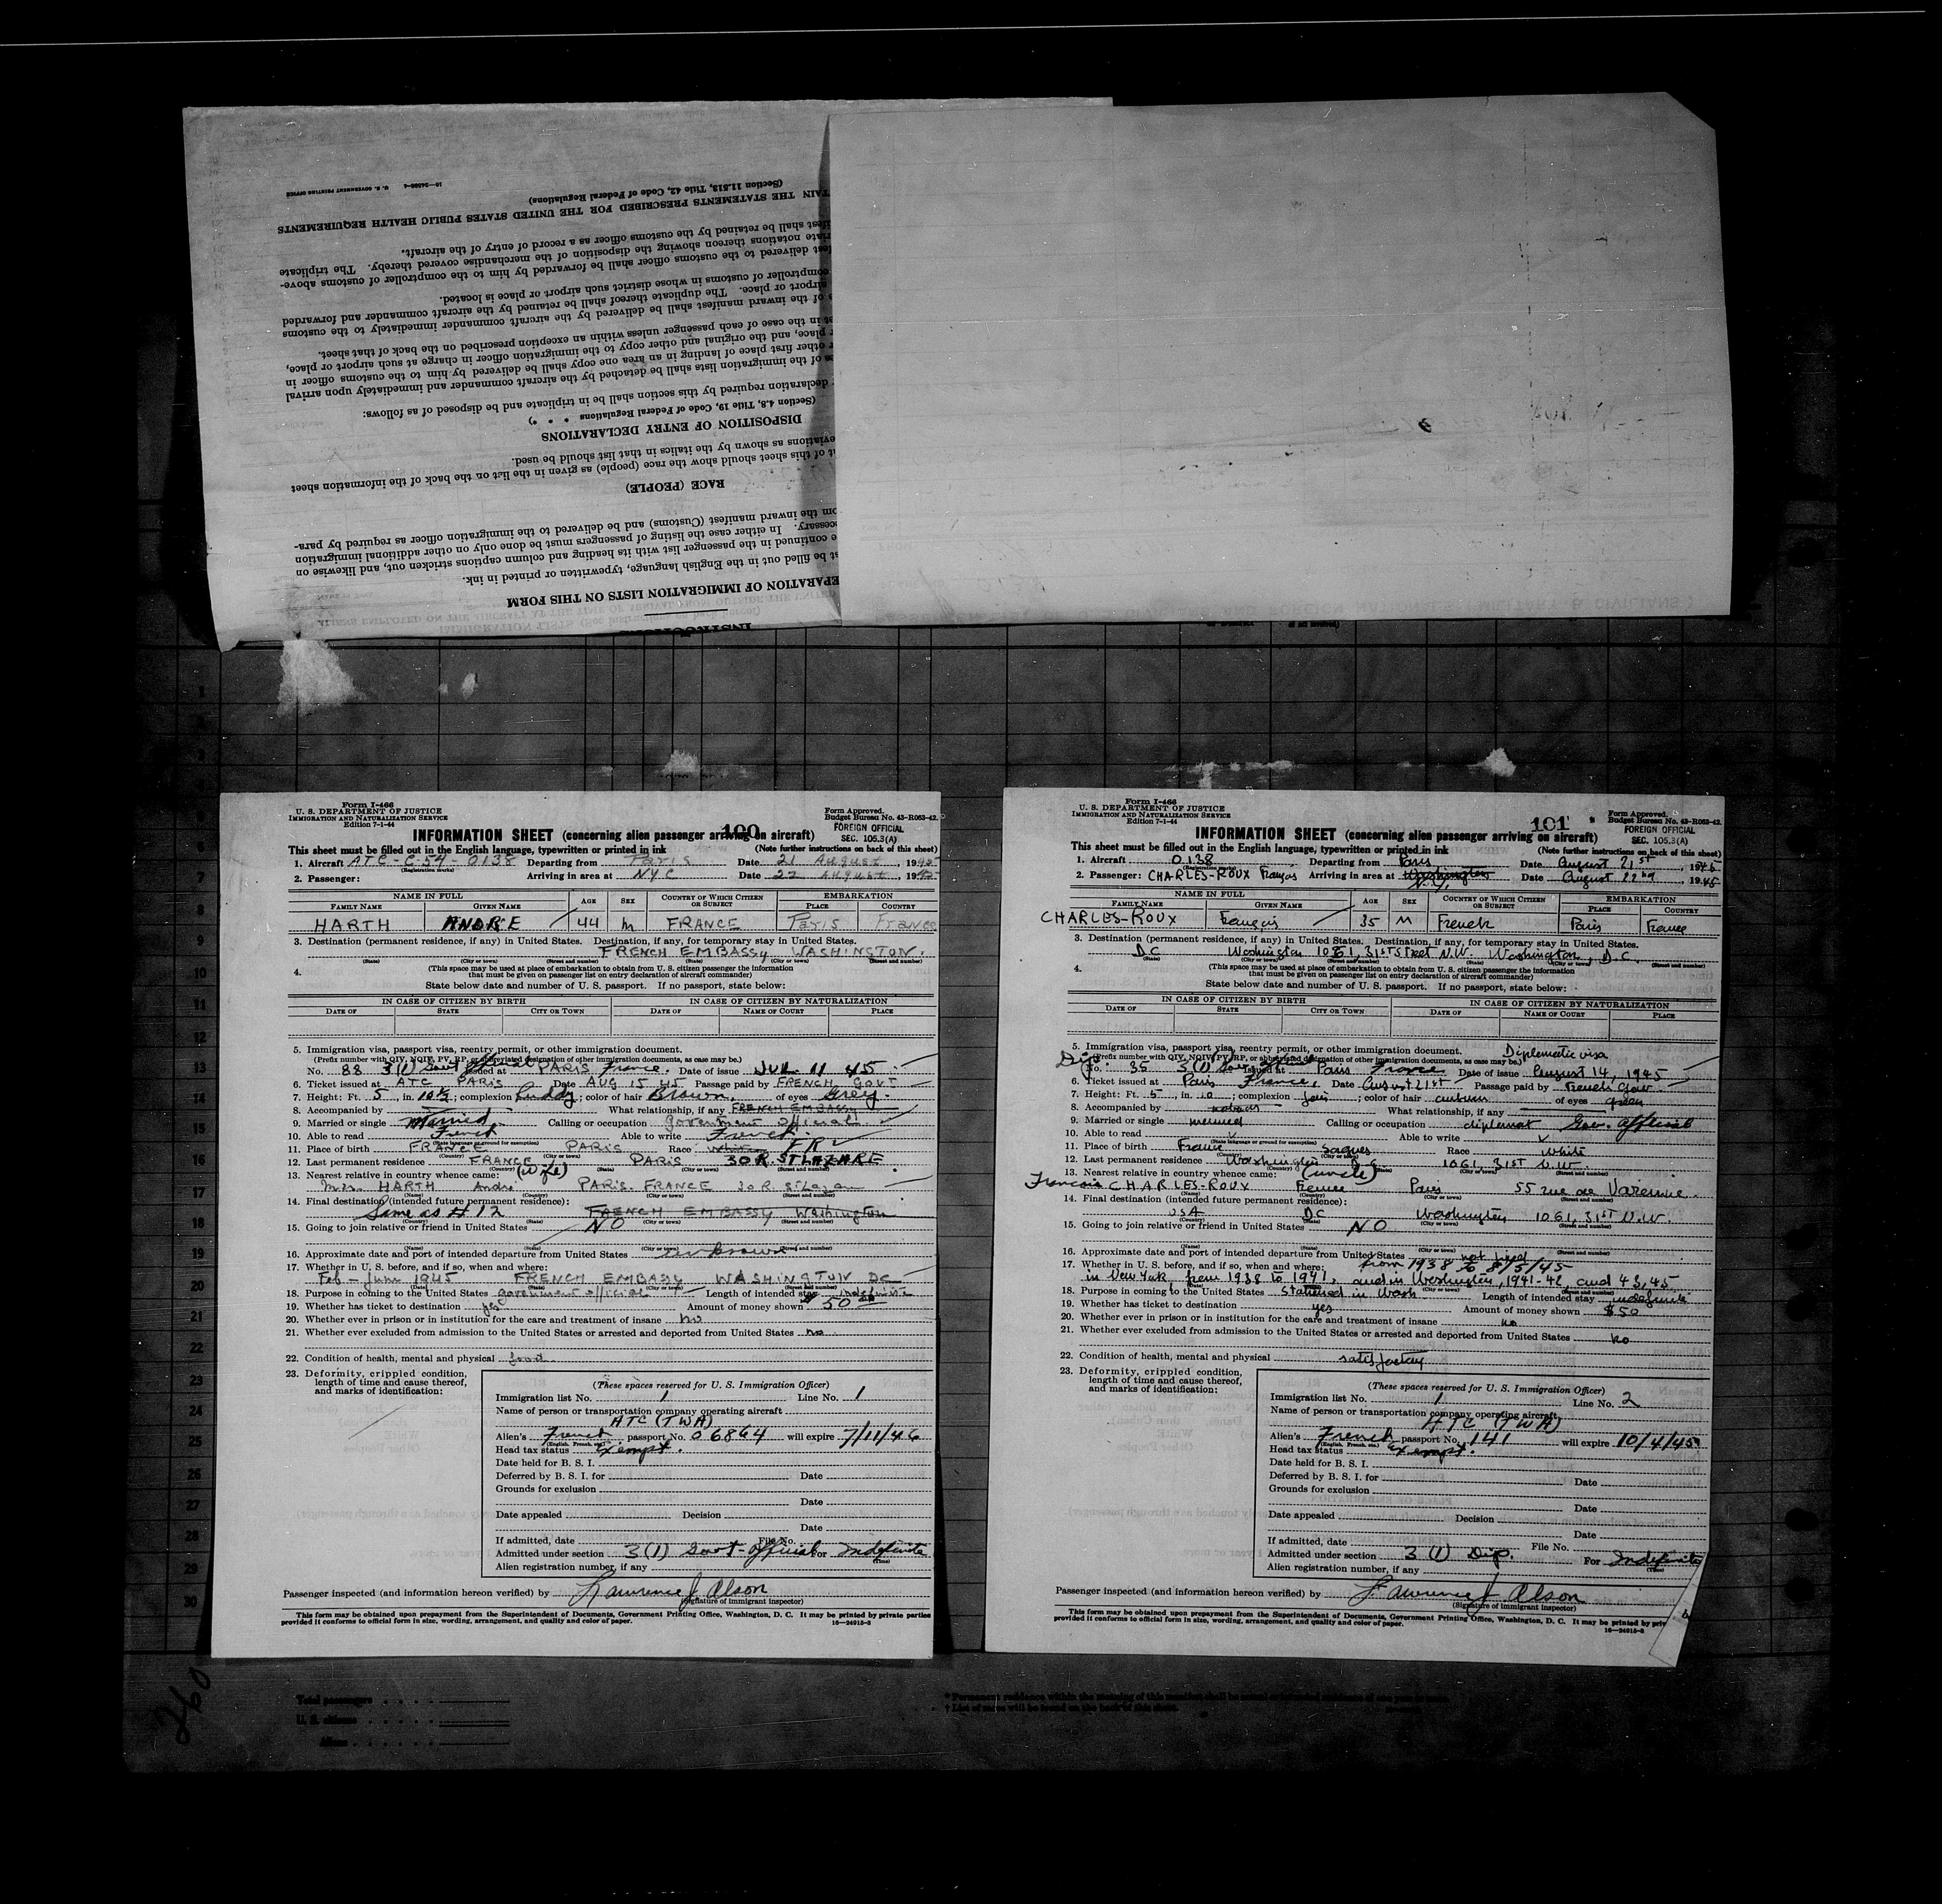 16—24596-4 U. S. GOVERNMENT PRINTING OFFICE
(Section 11.513, Title 42, Code of Federal Regulations)
TAIN THE STATEMENTS PRESCRIBED FOR THE UNITED STATES PUBLIC HEALTH REQUIREMENTS
ifest shall be retained by the customs officer as a record of entry of the aircraft.
riate notations thereon showing the disposition of the merchandise covered thereby. The triplicate
fest delivered to the customs officer shall be forwarded by him to the comptroller of customs above-
comptroller of customs in whose district such airport or place is located.
airport or place. The duplicate thereof shall be retained by the aircraft commander and forwarded
of the inward manifest shall be delivered by the aircraft commander immediately to the customs
in the case of each passenger unless within an exception prescribed on the back of that sheet.
place, and the original and other copy to the immigration officer in charge at such airport or place,
other first place of landing in an area one copy shall be delivered by him to the customs officer in
of the immigration lists shall be detached by the aircraft commander and immediately upon arrival
declaration required by this section shall be in triplicate and be disposed of as follows:
(Section 4.8, Title 19, Code of Federal Regulations * * *)
DISPOSITION OF ENTRY DECLARATIONS
eviations as shown by the italics in that list should be used.
t of this sheet should show the race (people) as given in the list on the back of the information sheet
RACE (PEOPLE)
om the inward manifest (Customs) and be delivered to the immigration officer as required by para-
ecessary. In either case the listing of passengers must be done only on other additional immigration
e continued in the passenger list with its heading and column captions stricken out, and likewise on
st be filled out in the English language, typewritten or printed in ink.
EPARATION OF IMMIGRATION LISTS ON THIS FORM
Form I-466
U. S. DEPARTMENT OF JUSTICE
IMMIGRATION AND NATURALIZATION SERVICE
Edition 7-1-44
Form Approved.
Budget Bureau No. 43-R063-42.
FOREIGN OFFICIAL
SEC. 105.3(A)
100
INFORMATION SHEET (concerning alien passenger arriving on aircraft)
This sheet must be filled out in the English language, typewritten or printed in ink (Note further instructions on back of this sheet)
1. Aircraft ATC-C-54-0138 Departing from Paris Date 21 August, 1945
(Registration marks)
2. Passenger: Arriving in area at NYC Date 22 August, 1945
NAME IN FULL AGE SEX COUNTRY OF WHICH CITIZEN OR SUBJECT EMBARKATION
FAMILY NAME GIVEN NAME PLACE COUNTRY
HARTH ANDRE 44 M FRANCE Paris France
3. Destination (permanent residence, if any) in United States. Destination, if any, for temporary stay in United States.
FRENCH EMBASSY WASHINGTON.
(State) (City or town) (Street and number) (State) (City or town) (Street and number)
4. (This space may be used at place of embarkation to obtain from U. S. citizen passenger the information
that must be given on passenger list on entry declaration of aircraft commander)
State below date and number of U. S. passport. If no passport, state below:
IN CASE OF CITIZEN BY BIRTH IN CASE OF CITIZEN BY NATURALIZATION
DATE OF STATE CITY OR TOWN DATE OF NAME OF COURT PLACE
5. Immigration visa, passport visa, reentry permit, or other immigration document.
(Prefix number with QIV, NQIV, PV, RP, or abbreviated designation of other immigration documents, as case may be.)
No. 88 3(1) Govt official issued at PARIS France. Date of issue JUL 11 45
6. Ticket issued at ATC PARIS Date AUG 15 45 Passage paid by FRENCH GOVT
7. Height: Ft. 5, in. 10½; complexion Ruddy; color of hair Brown, of eyes Grey.
8. Accompanied by What relationship, if any FRENCH EMBASSY
9. Married or single Married Calling or occupation government official
10. Able to read French Able to write French.
(State language or ground for exemption)
11. Place of birth FRANCE PARIS Race white FR
(Country) (City or town)
12. Last permanent residence FRANCE PARIS 30 R. ST LAZARE
(Country) (State) (City or town) (Street and number)
13. Nearest relative in country whence came: (wife)
Mrs. HARTH André PARIS. FRANCE 30 R. St Lazare
(Name) (Country) (City or town) (Street and number)
14. Final destination (intended future permanent residence):
Same as # 12 FRENCH EMBASSY Washington
(Country) (State) (City or town) (Street and number)
15. Going to join relative or friend in United States NO
(Name) (State) (City or town) (Street and number)
16. Approximate date and port of intended departure from United States unknown
17. Whether in U. S. before, and if so, when and where:
Feb - June 1945 FRENCH EMBASSY WASHINGTON DC
18. Purpose in coming to the United States government official Length of intended stay indefinite
19. Whether has ticket to destination yes Amount of money shown $50.00
20. Whether ever in prison or in institution for the care and treatment of insane no
21. Whether ever excluded from admission to the United States or arrested and deported from United States no
22. Condition of health, mental and physical good
23. Deformity, crippled condition, length of time and cause thereof, and marks of identification:
(These spaces reserved for U. S. Immigration Officer)
Immigration list No. 1 Line No. 1
Name of person or transportation company operating aircraft
ATC (TWA)
Alien's French passport No. 06864 will expire 7/11/46
(English, French, etc.)
Head tax status Exempt.
Date held for B. S. I.
Deferred by B. S. I. for Date
Grounds for exclusion
Date
Date appealed Decision
Date
If admitted, date File No.
Admitted under section 3(1) Govt-official For Indefinite
(Time)
Alien registration number, if any
Passenger inspected (and information hereon verified) by Lawrence J Olson
(Signature of immigrant inspector)
This form may be obtained upon prepayment from the Superintendent of Documents, Government Printing Office, Washington, D. C. It may be printed by private parties
provided it conforms to official form in size, wording, arrangement, and quality and color of paper. 16—24915-3
Form I-466
U. S. DEPARTMENT OF JUSTICE
IMMIGRATION AND NATURALIZATION SERVICE
Edition 7-1-44
Form Approved.
Budget Bureau No. 43-R063-42.
FOREIGN OFFICIAL
SEC. 105.3(A)
101
INFORMATION SHEET (concerning alien passenger arriving on aircraft)
This sheet must be filled out in the English language, typewritten or printed in ink (Note further instructions on back of this sheet)
1. Aircraft 0138 Departing from Paris Date August 21st, 1945
2. Passenger: CHARLES-ROUX François Arriving in area at Washington N.Y. Date August 22nd, 1945
NAME IN FULL AGE SEX COUNTRY OF WHICH CITIZEN OR SUBJECT EMBARKATION
FAMILY NAME GIVEN NAME PLACE COUNTRY
CHARLES-ROUX François 35 M French Paris France
3. Destination (permanent residence, if any) in United States. Destination, if any, for temporary stay in United States.
DC Washington 1061, 31st Street N.W. Washington, D.C.
(State) (City or town) (Street and number) (State) (City or town) (Street and number)
4. (This space may be used at place of embarkation to obtain from U. S. citizen passenger the information
that must be given on passenger list on entry declaration of aircraft commander)
State below date and number of U. S. passport. If no passport, state below:
IN CASE OF CITIZEN BY BIRTH IN CASE OF CITIZEN BY NATURALIZATION
DATE OF STATE CITY OR TOWN DATE OF NAME OF COURT PLACE
5. Immigration visa, passport visa, reentry permit, or other immigration document. Diplomatic visa
(Prefix number with QIV, NQIV, PV, RP, or abbreviated designation of other immigration documents, as case may be.)
Dip. No. 35 3(1) Gov. official issued at Paris France Date of issue August 14, 1945
6. Ticket issued at Paris France. Date August 21st Passage paid by French Gov.
7. Height: Ft. 5, in. 10; complexion fair; color of hair auburn of eyes green
8. Accompanied by nobody What relationship, if any
9. Married or single married Calling or occupation diplomat Gov. official
10. Able to read Able to write
(State language or ground for exemption)
11. Place of birth France Race white
(Country) (City or town)
12. Last permanent residence Washington D.C. 1061, 31st N.W.
(Country) (State) (City or town) (Street and number)
13. Nearest relative in country whence came: (uncle)
Francois CHARLES-ROUX France Paris 55 rue de Varenne.
(Name) (Country) (City or town) (Street and number)
14. Final destination (intended future permanent residence):
USA DC Washington 1061, 31st N.W.
(Country) (State) (City or town) (Street and number)
15. Going to join relative or friend in United States NO
(Name) (State) (City or town) (Street and number)
16. Approximate date and port of intended departure from United States not fixed
17. Whether in U. S. before, and if so, when and where: from 1938 to 8/5/45
in New York from 1938 to 1941, and in Washington, 1941-42, and 43,45
18. Purpose in coming to the United States stationed in Wash Length of intended stay indefinite
19. Whether has ticket to destination yes Amount of money shown $50
20. Whether ever in prison or in institution for the care and treatment of insane no
21. Whether ever excluded from admission to the United States or arrested and deported from United States no
22. Condition of health, mental and physical satisfactory
23. Deformity, crippled condition, length of time and cause thereof, and marks of identification:
(These spaces reserved for U. S. Immigration Officer)
Immigration list No. 1 Line No. 2
Name of person or transportation company operating aircraft
ATC (TWA)
Alien's French passport No. 141 will expire 10/4/45
(English, French, etc.)
Head tax status Exempt.
Date held for B. S. I.
Deferred by B. S. I. for Date
Grounds for exclusion
Date
Date appealed Decision
Date
If admitted, date File No.
Admitted under section 3(1) Dip. For Indefinite
(Time)
Alien registration number, if any
Passenger inspected (and information hereon verified) by Lawrence J Olson
(Signature of immigrant inspector)
This form may be obtained upon prepayment from the Superintendent of Documents, Government Printing Office, Washington, D. C. It may be printed by priv
provided it conforms to official form in size, wording, arrangement, and quality and color of paper. 16—24915-3
260
Total passengers
U. S. citizens
Aliens
† List of races will be found on the back of this sheet.